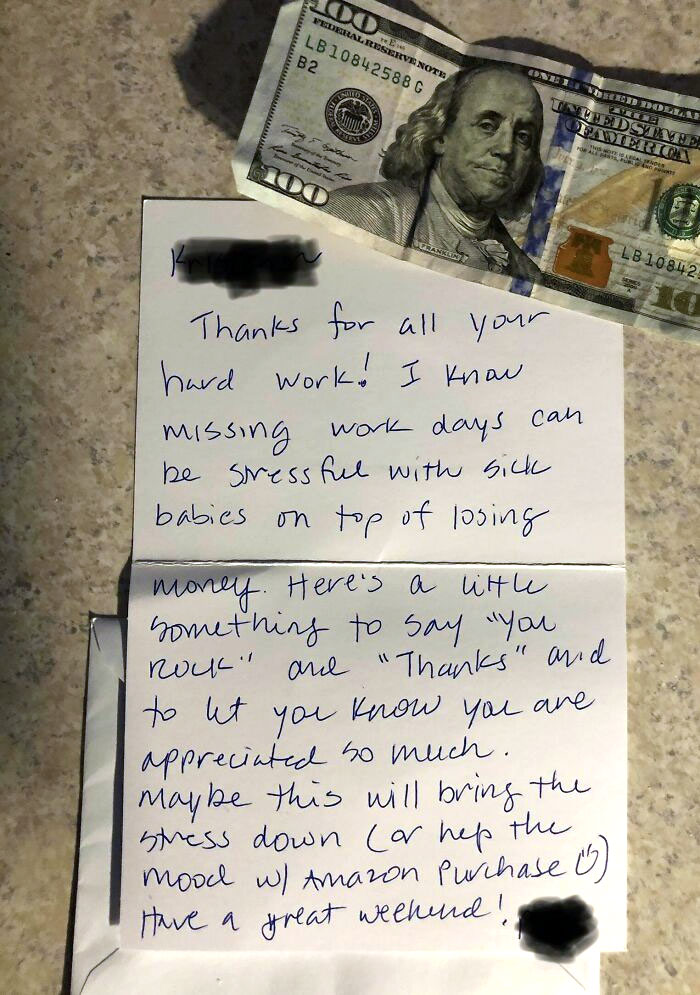 100
FEDERAL RESERVE NOTE
LB10842588G
B2
ONE HUNDRED DOLLARS
THE
UNITED STATES
OF AMERICA
THIS NOTE IS LEGAL TENDER
FOR ALL DEBTS, PUBLIC AND PRIVATE
100
FRANKLIN
LB10842
SERIES
10
Thanks for all your
hard work! I know
missing work days can
be stressful with sick
babies on top of losing
money. Here's a little
something to say "you
rock" and "Thanks" and
to let you know you are
appreciated so much.
Maybe this will bring the
stress down (or help the
mood w/ Amazon purchase ☺)
Have a great weekend!